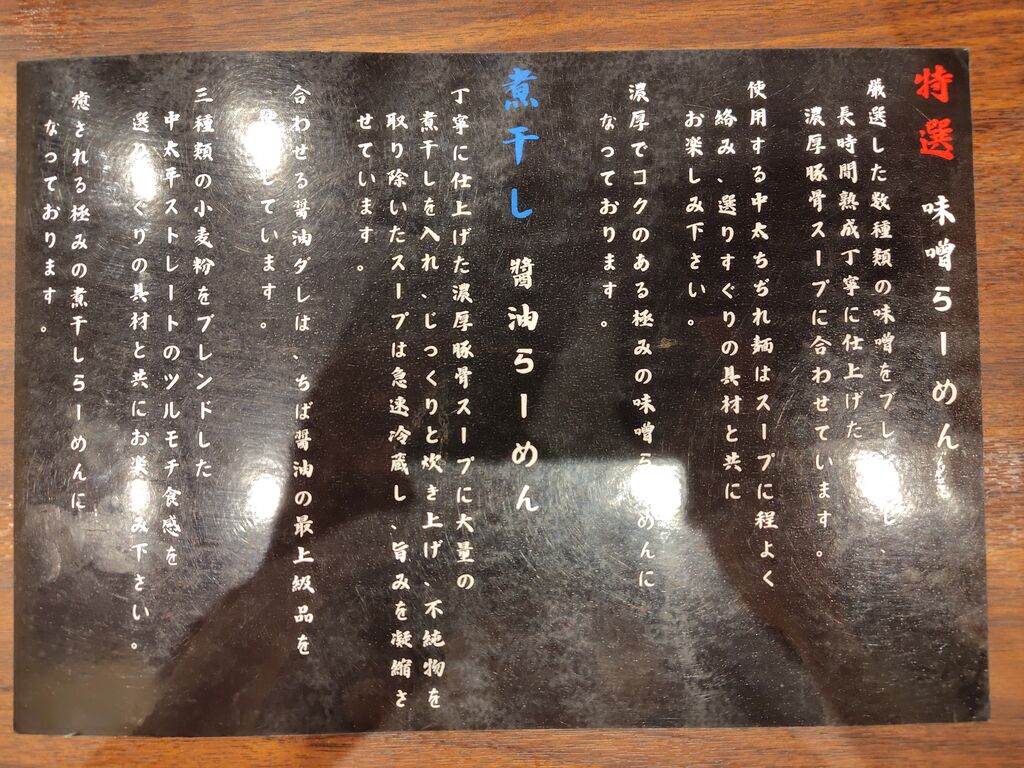 特選 味噌らーめん
厳選した数種類の味噌をブレ し、
長時間熟成丁寧に仕上げた
濃厚豚骨スープに合わせています。
使用する中太ちぢれ麺はスープに程よく
絡み、選りすぐりの具材と共に
お楽しみ下さい。
濃厚でコクのある極みの味噌ら めんに
なっております。
煮干し 醤油らーめん
丁寧に仕上げた濃厚豚骨スープに大量の
煮干しを入れ、じっくりと炊き上げ、不純物を
取り除いたスープは急速冷蔵し、旨みを凝縮さ
せています。
合わせる醤油ダレは、ちば醤油の最上級品を
しています。
三種類の小麦粉をブレンドした
中太平ストレートのツルモチ食感を
選り ぐりの具材と共にお楽 み下さい。
癒される極みの煮干しらーめんに
なっております。